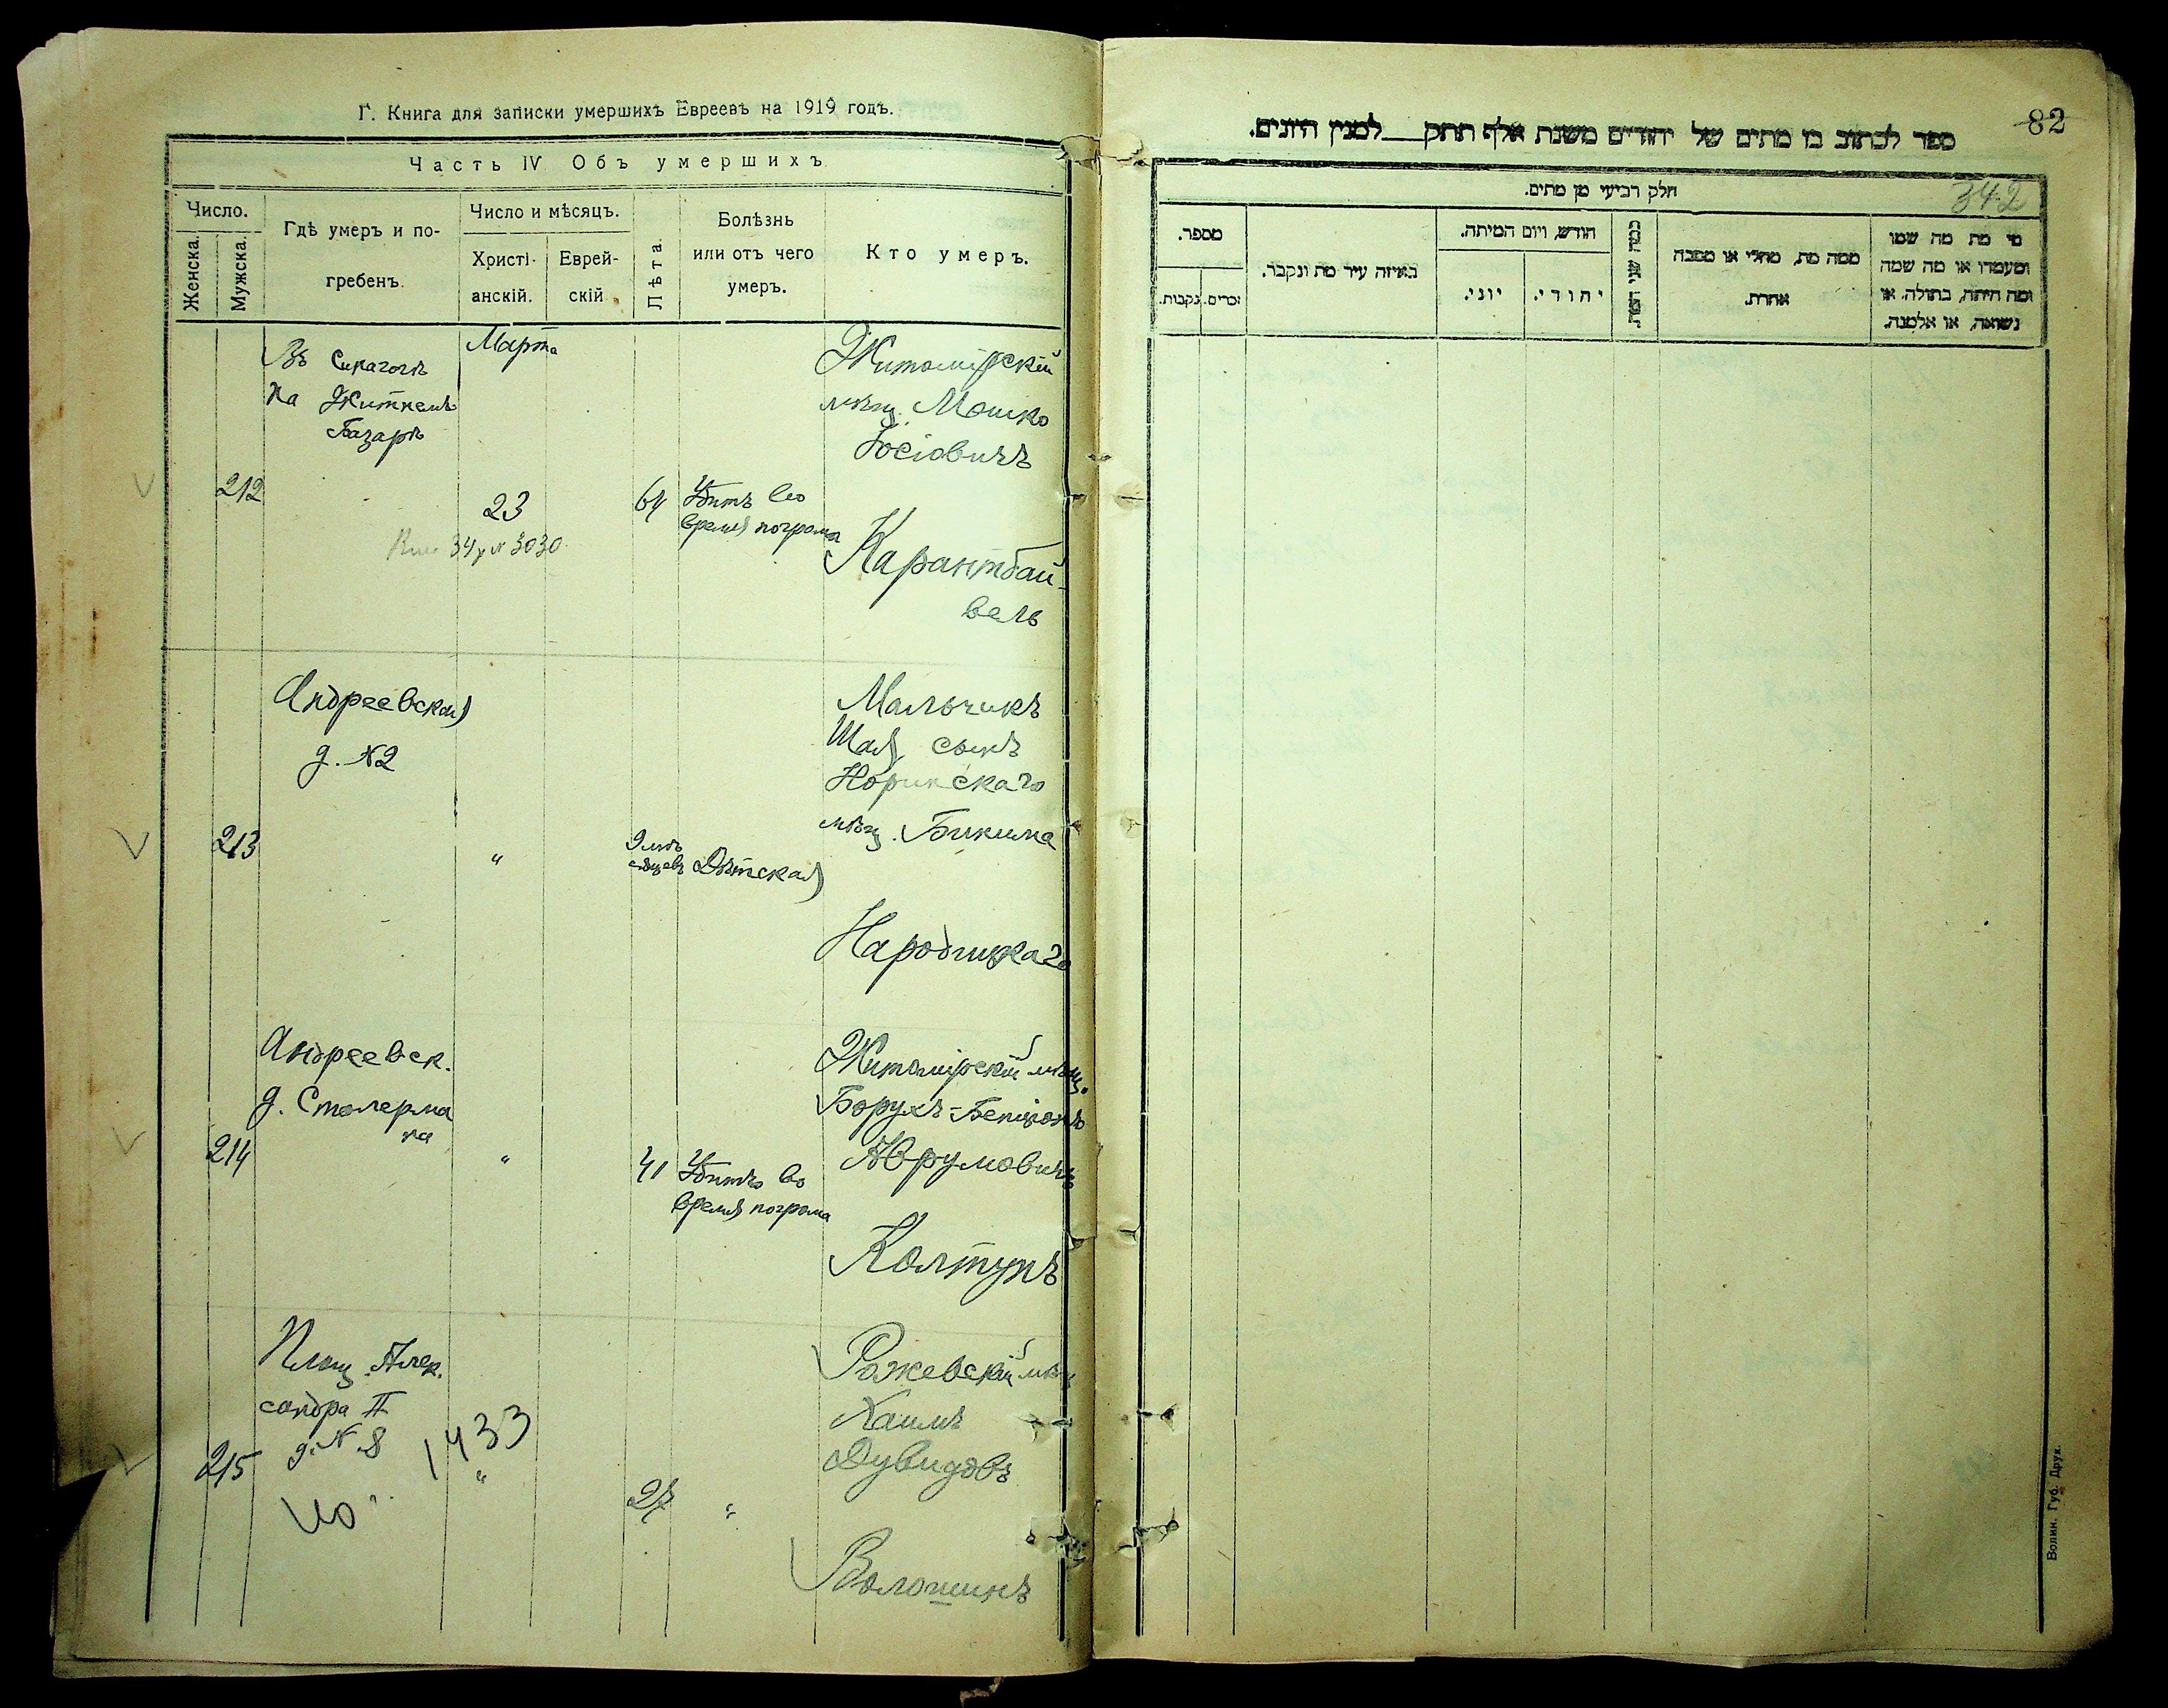 Г. Книга для записки умершихъ Евреевъ на 1919 годъ.
Часть IV Объ умершихъ
Число.
Женска.
Мужска.
Гдѣ умеръ и по-
гребенъ.
Число и мѣсяцъ.
Христі-
анскій.
Еврей-
скій
Лѣта.
Болѣзнь
или отъ чего
умеръ.
Кто умеръ.
Марта
Въ Синагогѣ
на Житнемъ
Базарѣ
212
23
64
Убитъ во
время погрома
Житомірскій
мѣщ. Мошко
Іосіовичъ
Карантбай-
вель
34 у № 3030
Андреевская
д. №2
213
"
9 мѣ-
сяцевъ
Дѣтская
Мальчикъ
Шая, сынъ
Норинскаго
мѣщ. Бикима
Народицкаго
Андреевск.
д. Столерма
на
214
"
41
Убитъ во
время погрома
Житомірскій мѣщ.
Борухъ-Бенціонъ
Аврумовичъ
Колтунъ
Площ. Алек.
сандра II
д. № 8
1433
215
"
27
"
Рожевскій мѣщ
Хаимъ
Дувидовъ
Волошинъ
82
ספר לכתוב בו מתים של יהודים משנת אלף תתק___למנין היונים.
342
חלק רביעי מן מתים.
מספר.
זכרים.
נקבות.
באיזה עיר מת ונקבר.
חודש, ויום המיתה.
יוני.
יהודי.
כמה שני המת.
ממה מת, מחלי או מסבה
אחרת.
מי מת מה שמו
ומעמדו או מה שמה
ומה היתה, בתולה. או
נשואה, או אלמנה.
Волин. Губ. Друк.